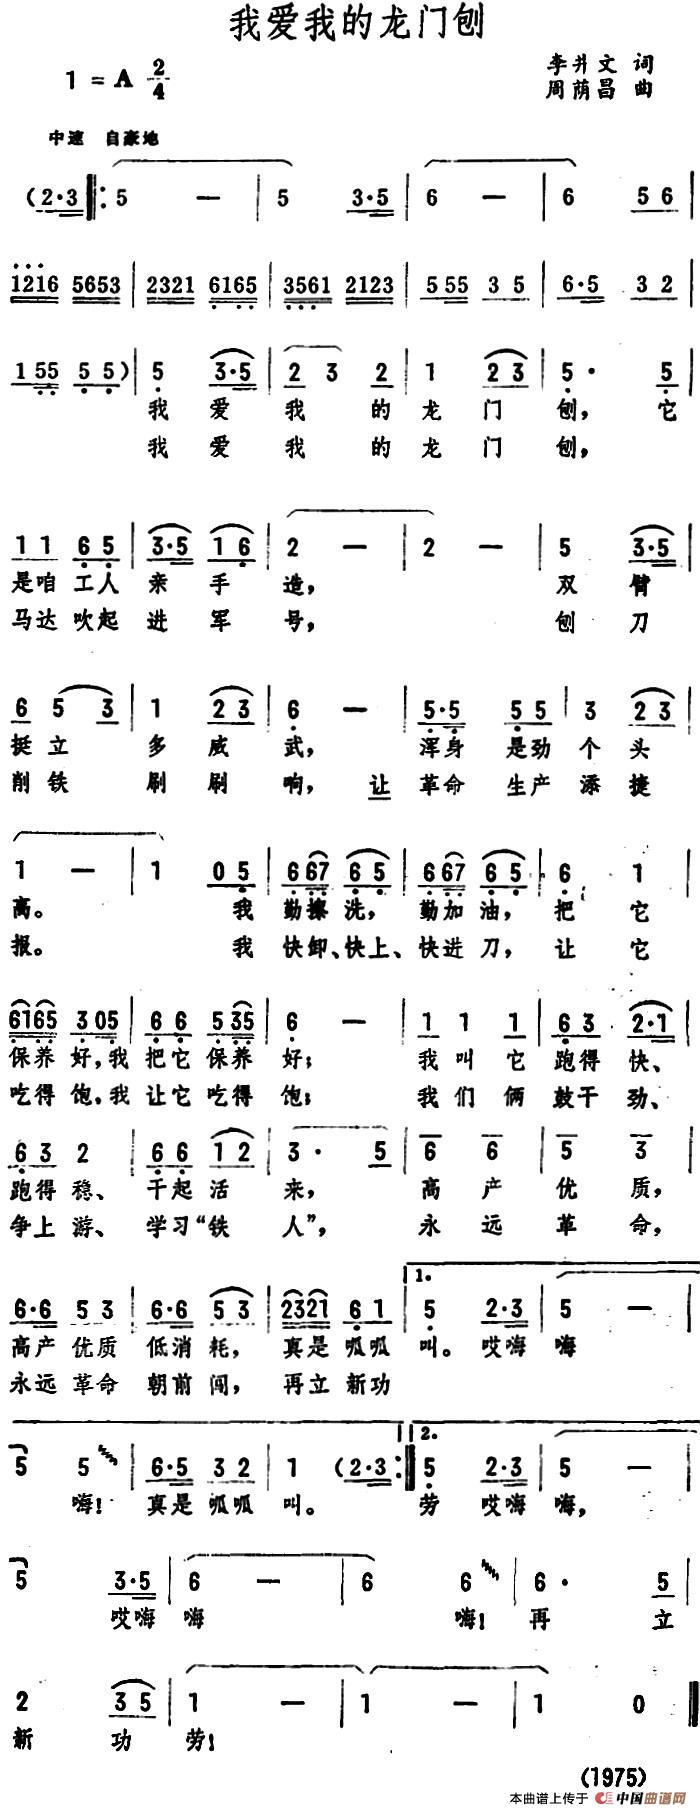 我爱我的龙门刨
1 = A 2/4
李井文 词
周荫昌 曲
中速 自豪地
(2·3 ‖: 5 — | 5 3·5 | 6 — | 6 5 6 |
1216 5653 | 2321 6165 | 3561 2123 | 5 55 3 5 | 6·5 3 2 |
1 55 5 5) | 5 3·5 | 2 3 2 | 1 2 3 | 5· 5 |
我 爱 我 的 龙 门 刨， 它
我 爱 我 的 龙 门 刨，
1 1 6 5 | 3·5 1 6 | 2 — | 2 — | 5 3·5 |
是咱 工人 亲 手 造， 双 臂
马达 吹起 进 军 号， 刨 刀
6 5 3 | 1 2 3 | 6 — | 5·5 5 5 | 3 2 3 |
挺 立 多 威 武， 浑身 是劲 个 头
削 铁 刷 刷 响， 让 革命 生产 添 捷
1 — | 1 0 5 | 6 67 6 5 | 6 67 6 5 | 6 1 |
高。 我 勤擦 洗， 勤加 油， 把 它
报。 我 快卸、快上、快进 刀， 让 它
6165 3 05 | 6 6 5 35 | 6 — | 1 1 1 | 6 3 2·1 |
保养 好，我 把它 保养 好； 我 叫 它 跑得 快、
吃得 饱，我 让它 吃得 饱； 我 们 俩 鼓干 劲、
6 3 2 | 6 6 1 2 | 3· 5 | 6 6 | 5 3 |
跑得 稳、 干起 活 来， 高 产 优 质，
争上 游、 学习“铁 人”， 永 远 革 命，
6·6 5 3 | 6·6 5 3 | 2321 6 1 | 1. 5 2·3 | 5 — |
高产 优质 低消 耗， 真是 呱呱 叫。 哎嗨 嗨
永远 革命 朝前 闯， 再立 新功
5 5 | 6·5 3 2 | 1 (2·3 :‖ 2. 5 2·3 | 5 — |
嗨！ 真是 呱呱 叫。 劳 哎嗨 嗨，
5 3·5 | 6 — | 6 6 | 6· 5 |
哎嗨 嗨 嗨！ 再 立
2 3 5 | 1 — | 1 — | 1 0 ‖
新 功 劳！
(1975)
本曲谱上传于 中国曲谱网